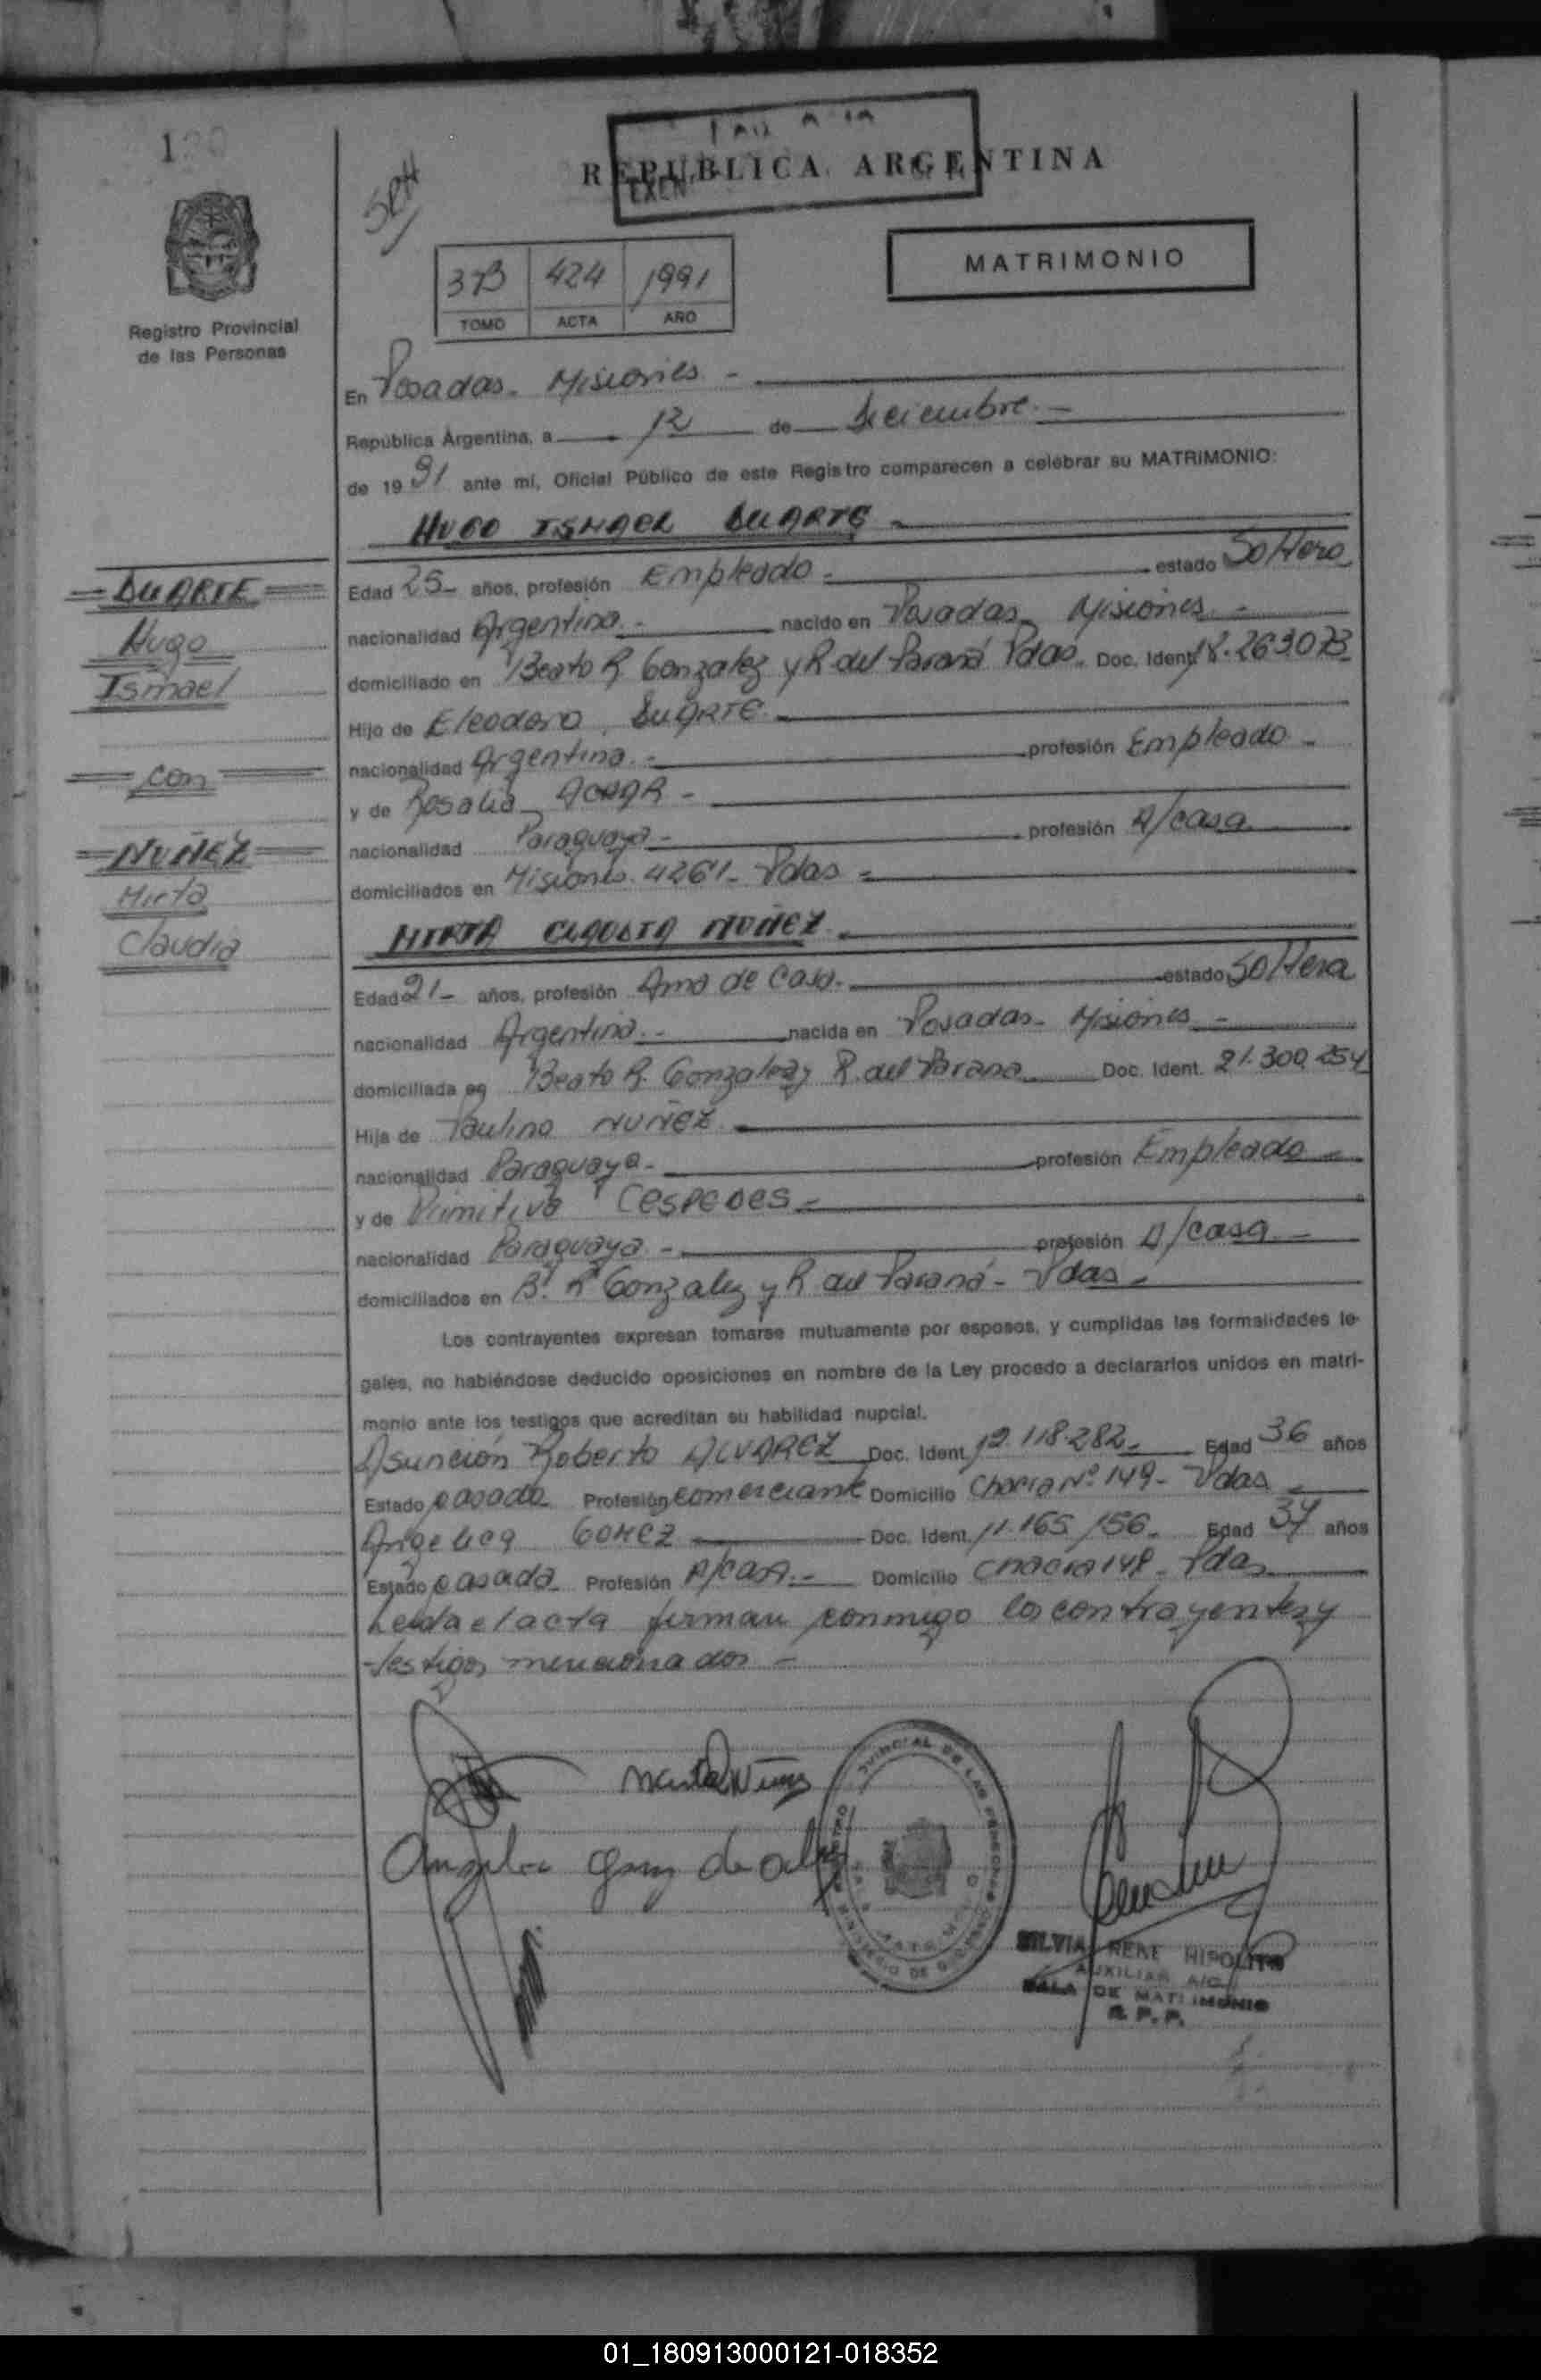 REPUBLICA ARGENTINA
Registro Provincial
de las Personas
3B 424 1991
TOMO ACTA AÑO
MATRIMONIO
En Posadas. Misiones -
República Argentina, a 12 de Diciembre. -
de 1991 ante mí, Oficial Público de este Registro comparecen a celebrar su MATRIMONIO:
HUGO ISMAEL DUARTE -
Edad 25- años, profesión Empleado - estado Soltero
nacionalidad Argentina. - nacido en Posadas - Misiones -
domiciliado en Beato R. Gonzalez y R. del Paraná Pdas. Doc. Ident. 18.263.073
Hijo de Eleodoro DUARTE. -
nacionalidad Argentina. - profesión Empleado -
y de Rosalia -
nacionalidad Paraguaya - profesión A/casa
domiciliados en Misiones. 4261 - Pdas -
DUARTE
Hugo
Ismael
con
NUÑEZ
Mirta
Claudia
MIRTA CLAUDIA NUÑEZ. -
Edad 21- años, profesión Ama de Casa. - estado Soltera
nacionalidad Argentina. - nacida en Posadas - Misiones -
domiciliada en Beato R. Gonzalez y R. del Parana Doc. Ident. 21.300.254
Hija de Paulino NUÑEZ -
nacionalidad Paraguaya - profesión Empleado -
y de Primitiva CESPEDES -
nacionalidad Paraguaya - profesión A/casa -
domiciliados en B. R. Gonzalez y R. del Paraná - Pdas -
Los contrayentes expresan tomarse mutuamente por esposos, y cumplidas las formalidades le-
gales, no habiéndose deducido oposiciones en nombre de la Ley procedo a declararlos unidos en matri-
monio ante los testigos que acreditan su habilidad nupcial.
Asunción Roberto ALVAREZ Doc. Ident. 12.118.282 - Edad 36 años
Estado casado Profesión comerciante Domicilio Chacra Nº 149 - Pdas -
Angelica GOMEZ Doc. Ident. 11.165.156 - Edad 37 años
Estado casada Profesión A/casa. - Domicilio Chacra 149 - Pdas
Leida el acta firman conmigo los contrayentes y
testigos mencionados -
SILVIA RENE HIPOLITO
AUXILIAR A/C
SALA DE MATRIMONIO
R. P. P.
01_180913000121-018352